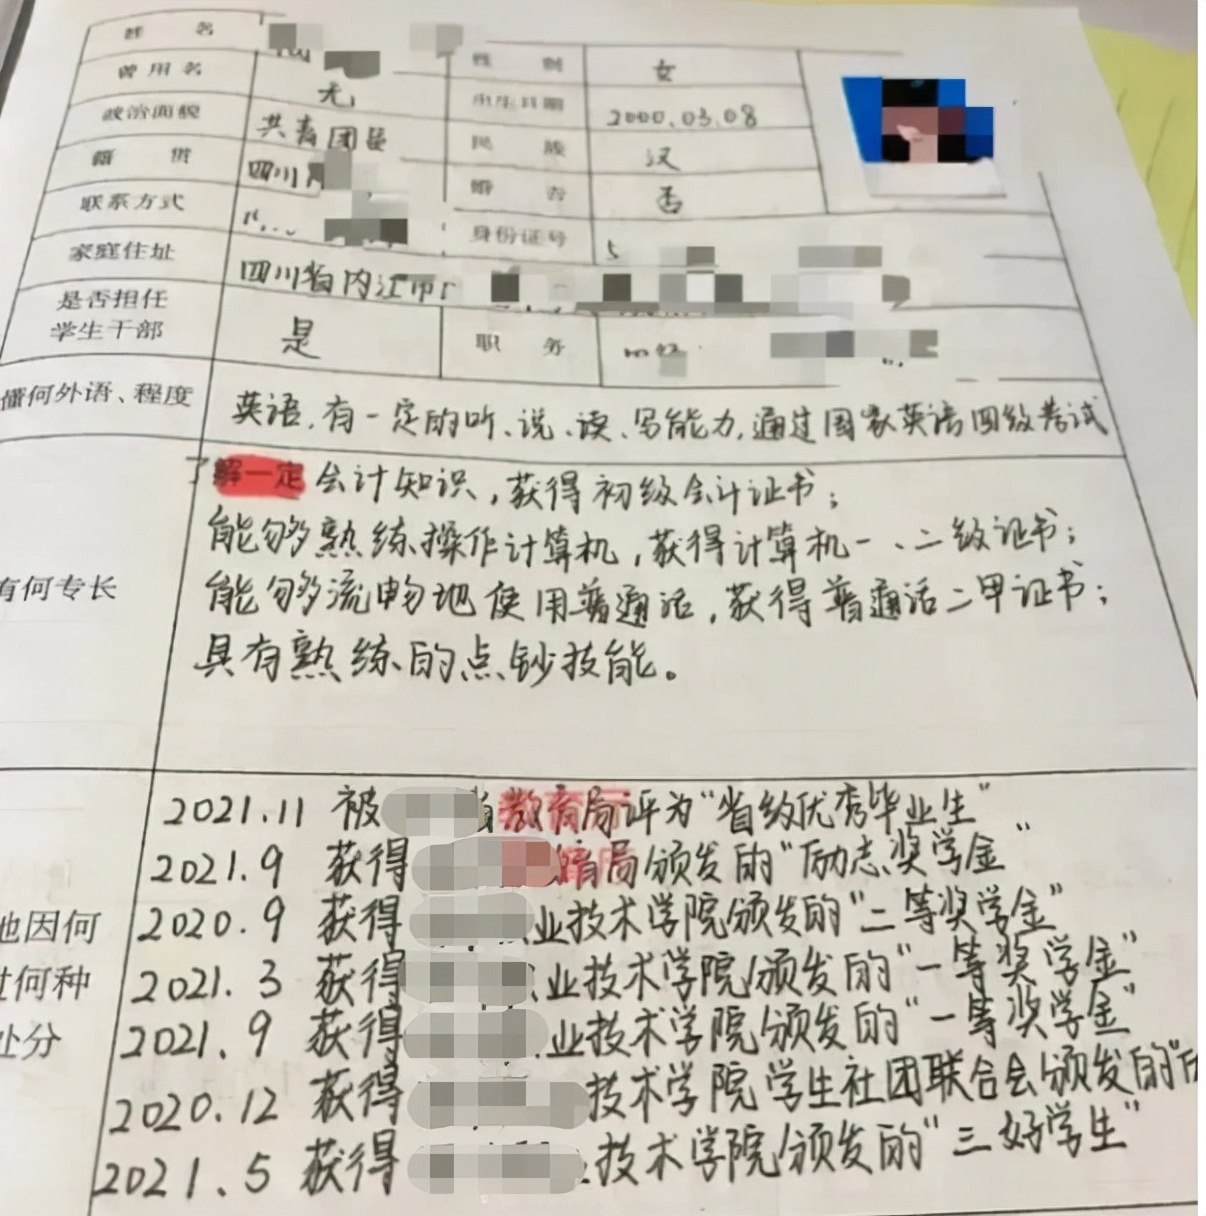 姓 名
曾用名 无
性 别 女
政治面貌 共青团员
出生日期 2000.03.08
籍 贯 四川
民 族 汉
联系方式
婚 否 否
家庭住址 四川省内江市
身份证号 5
是否担任
学生干部 是
职 务
懂何外语、程度 英语,有一定的听、说、读、写能力,通过国家英语四级考试
有何专长
了解一定会计知识,获得初级会计证书;
能够熟练操作计算机,获得计算机一、二级证书;
能够流畅地使用普通话,获得普通话二甲证书;
具有熟练的点钞技能。
因何
何种
处分
2021.11 被 省教育局评为"省级优秀毕业生"
2021.9 获得 育局颁发的"励志奖学金"
2020.9 获得 业技术学院颁发的"二等奖学金"
2021.3 获得 业技术学院颁发的"一等奖学金"
2021.9 获得 业技术学院颁发的"一等奖学金"
2020.12 获得 技术学院学生社团联合会颁发的"
2021.5 获得 技术学院颁发的"三好学生"